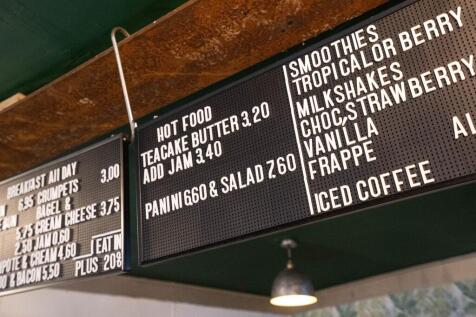 BREAKFAST All DAY
3.00
6.95 CRUMPETS
BUN BAGEL &
5.75 CREAM CHEESE 3.75
2.50 JAM 0.60
& CREAM 4.60
& BACON 5.50
EAT IN
PLUS 20%
HOT FOOD
TEACAKE BUTTER 3.20
ADD JAM 3.40
PANINI 6.60 & SALAD 7.60
SMOOTHIES
TROPICAL OR BERRY
MILKSHAKES
CHOC, STRAWBERRY
VANILLA
FRAPPE
ICED COFFEE